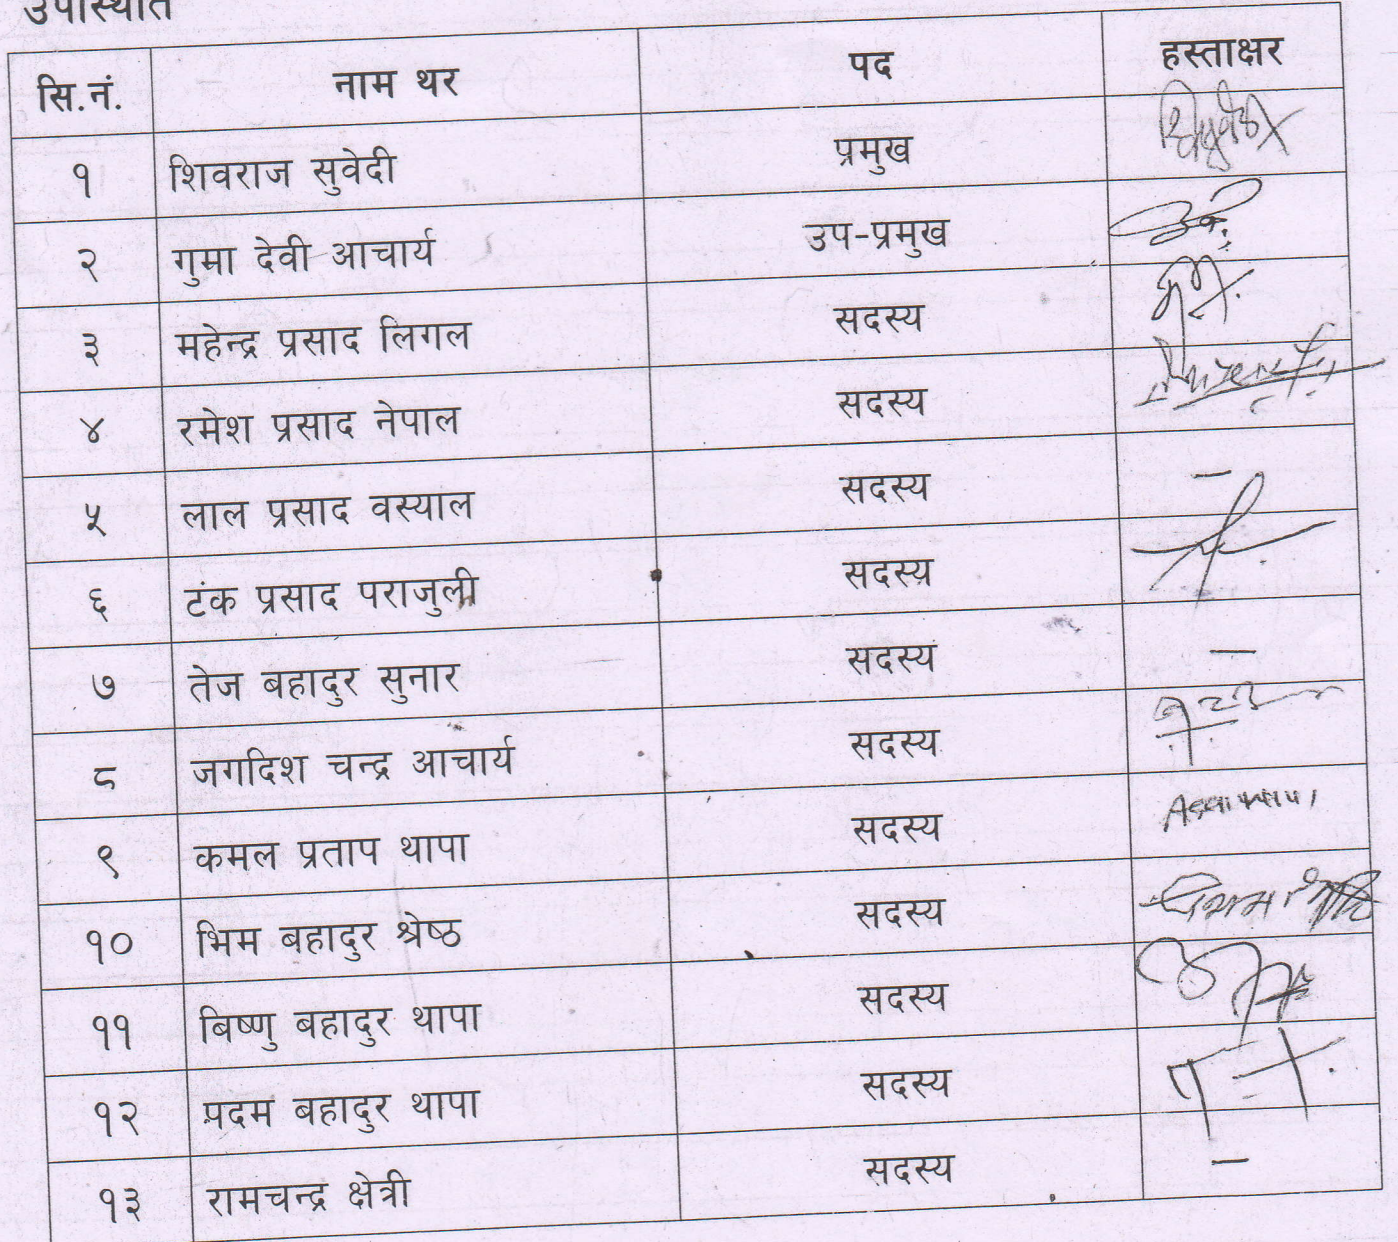 उपस्थिति
सि.नं. नाम थर पद हस्ताक्षर
१ शिवराज सुवेदी प्रमुख
२ गुमा देवी आचार्य उप-प्रमुख
३ महेन्द्र प्रसाद लिगल सदस्य
४ रमेश प्रसाद नेपाल सदस्य
५ लाल प्रसाद वस्याल सदस्य -
६ टंक प्रसाद पराजुली सदस्य
७ तेज बहादुर सुनार सदस्य -
८ जगदिश चन्द्र आचार्य सदस्य
९ कमल प्रताप थापा सदस्य
१० भिम बहादुर श्रेष्ठ सदस्य
११ बिष्णु बहादुर थापा सदस्य
१२ पदम बहादुर थापा सदस्य
१३ रामचन्द्र क्षेत्री सदस्य -